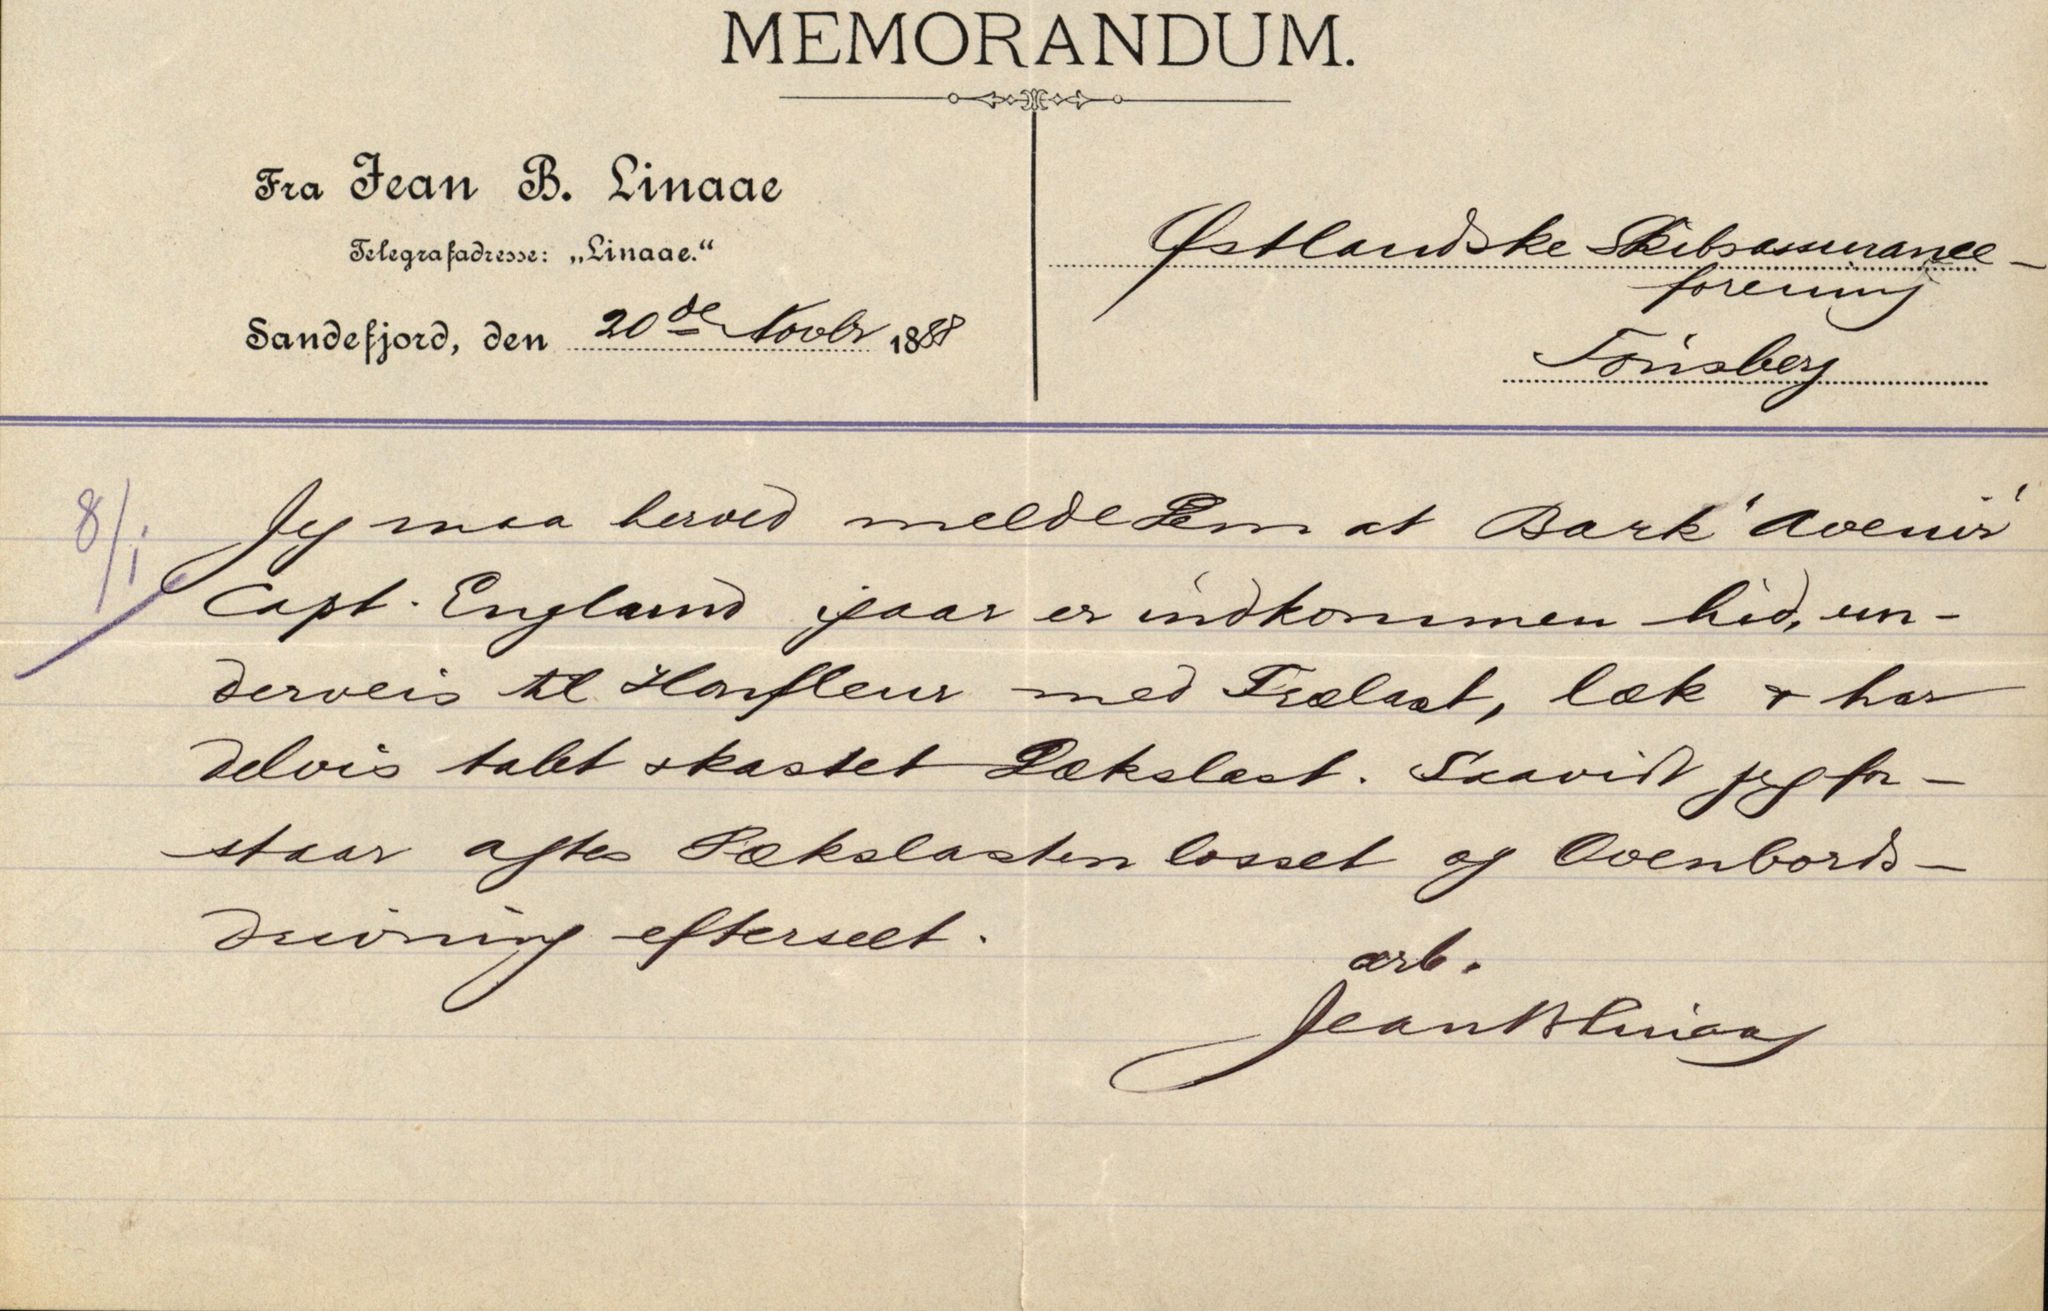 MEMORANDUM.
Fra Jean B. Linaae
Telegrafadresse: „Linaae.“
Sandefjord, den 20de Novbr 1888
Østlandske Skibsassurance-
forening
Tönsberg
8/1
Jeg maa herved melde Dem at Bark 'Avenir'
Capt. England igaar er indkommen hid, un-
derveis til Honfleur med Trælast, læk & har
delvis tabt & kastet Dækslast. Saavidt jeg for-
staar agtes Dækslasten losset og Ovenbords-
drivning efterseet.
ærb.
Jean B Linaae